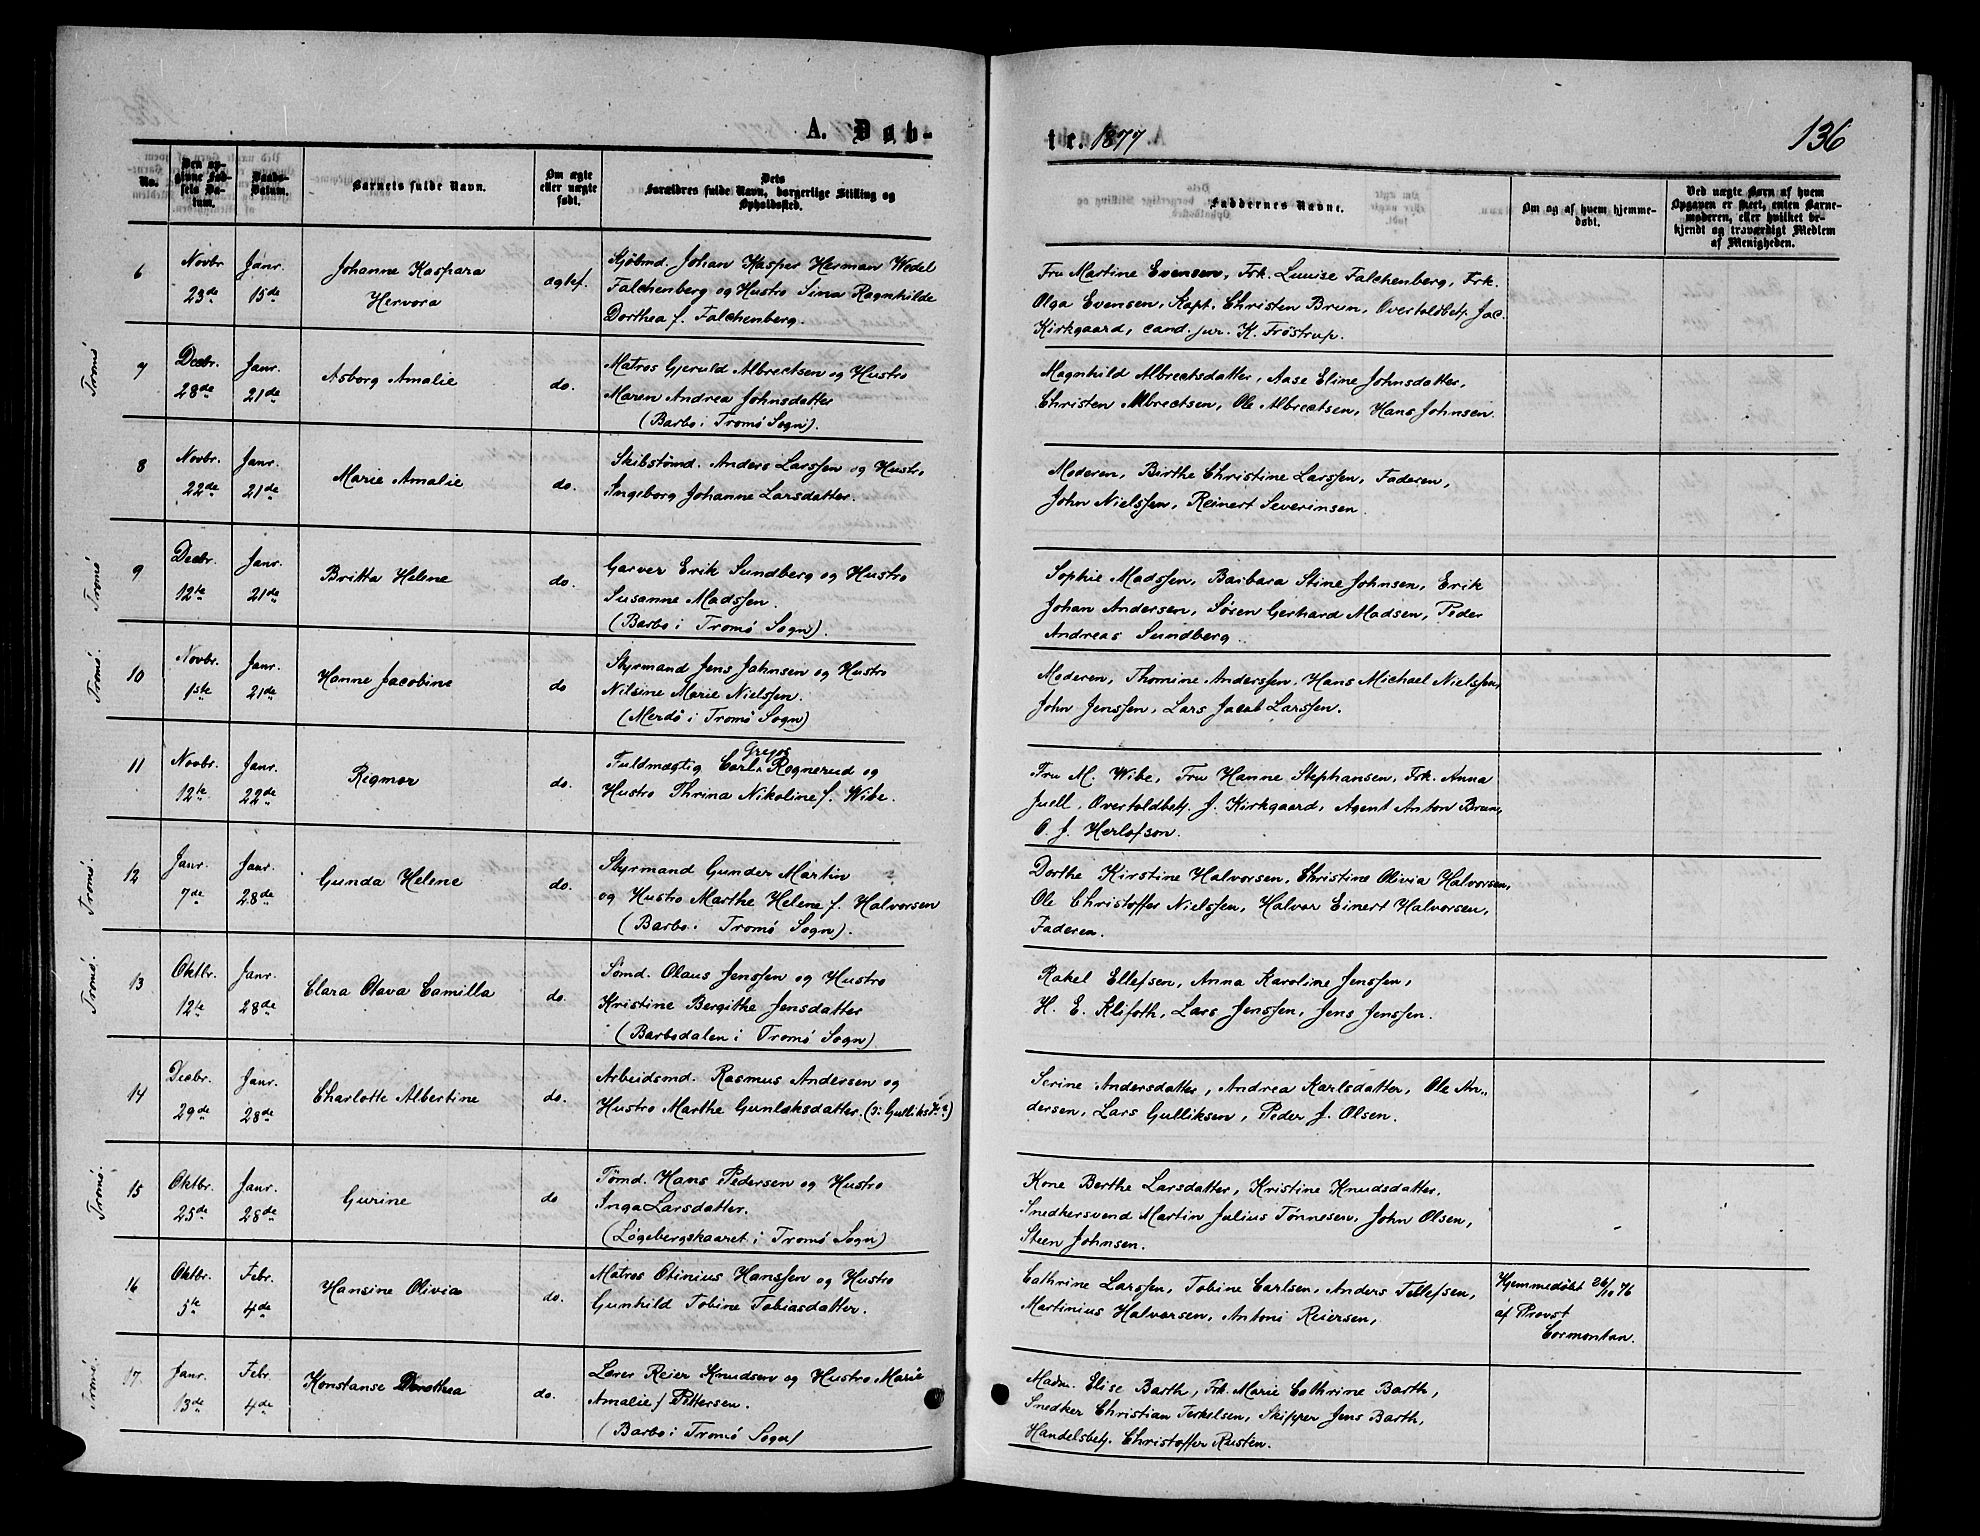 A. Døb-
te. 1877
136
No.
Den opgivne Fødsels Datum.
Daabs-Datum.
Barnets fulde Navn.
Om ægte eller uægte født.
Dets Forældres fulde Navn, borgerlige Stilling og Opholdssted.
Faddernes Navne.
Om og af hvem hjemmedøbt.
Ved uægte Børn af hvem Opgaven er skeet, enten Barnemoderen, eller hvilket bekjendt og troværdigt Medlem af Menigheden.
6
Novbr. 23de
Janr. 15de
Johanne Kaspara
Hervora
ægtef.
Kjøbmd. Johan Kasper Herman Wedel
Falchenberg og Hustro Sina Ragnhilde
Dorthea f. Falchenberg.
Fru Martine Evensen, Frk. Louise Falchenberg, Frk.
Olga Evensen, Kapt. Christen Brun, Overtoldbetj. Jac.
Kirkgaard, cand. jur. K. Frøstrup.
Tromø
7
Decbr. 28de
Janr. 21de
Asborg Amalie
do.
Matros Gjeruld Albrectsen og Hustro
Maren Andrea Johnsdatter
(Barbo i Tromø Sogn).
Magnhild Albrectsdatter, Aase Eline Johnsdatter,
Christen Albrectsen, Ole Albrectsen, Hans Johnsen.
8
Novbr. 22de
Janr. 21de
Marie Amalie
do.
Skibstømd. Anders Larssen og Hustro
Ingeborg Johanne Larsdatter.
Moderen, Birthe Christine Larssen, Faderen,
John Nielssen, Reinert Severinsen.
Tromø
9
Decbr. 12te
Janr. 21de
Britta Helene
do.
Garver Erik Sundberg og Hustro
Susanne Madssen.
(Barbo i Tromø Sogn).
Sophie Madssen, Barbara Stine Johnsen, Erik
Johan Andersen, Søren Gerhard Madsen, Peder
Andreas Sundberg.
Tromø.
10
Novbr. 1ste
Janr. 21de
Hanne Jacobine
do
Styrmand Jens Jahnsen og Hustro
Nilsine Marie Nielssen.
(Merdø i Tromø Sogn)
Moderen, Thomine Anderssen, Hans Michael Nielssen,
John Jenssen, Lars Jacob Larssen.
11
Novbr. 12te
Janr. 22de
Rigmor
do.
Gregos
Fuldmægtig Carl Rognerud og
Hustro Thrina Nikoline f. Wibe.
Fru M. Wibe, Fru Hanne Stephansen, Frk. Anna
Juell, Overtoldbetj. J. Kirkgaard, Agent Anton Brun,
O. J. Herlofson.
Tromø.
12
Janr. 7de
Janr. 28de
Gunda Helene
do.
Styrmand Gunder Martin
og Hustro Marthe Helene f. Halvorsen
(Barbo i Tromø Sogn).
Dorthe Kirstine Halvorsen, Christine Olivia Halvorsen,
Ole Christoffer Nielssen, Halvor Einert Halvorsen,
Faderen.
Tromø.
13
Oktbr. 12te
Janr. 28de
Clara Olava Camilla
do.
Sømd. Olaus Jenssen og Hustro
Kristine Bergithe Jensdatter
(Barbodalen i Tromø Sogn)
Rakel Ellefsen, Anna Karoline Jenssen,
H. E. Klifoth, Lars Jenssen, Jens Jenssen.
14
Decbr. 29de
Janr. 28de
Charlotte Albertine
do.
Arbeidsmd. Rasmus Andersen og
Hustro Marthe Gunlaksdatter.
Serine Andersdatter, Andrea Karlsdatter, Ole An-
dersen, Lars Gulliksen, Peder J. Olsen.
Tromø.
15
Oktbr. 25de
Janr. 28de
Gurine
do
Tømd. Hans Pedersen og Hustro
Inga Larsdatter.
(Løgebergskaaret i Tromø Sogn)
Kone Berthe Larsdatter, Kristine Knudsdatter,
Snedkersvend Martin Julius Tønnesen, John Olsen,
Steen Johnsen.
16
Oktbr. 5te
Febr. 4de
Hansine Olivia
do.
Matros Otinius Hanssen og Hustro
Gunhild Tobine Tobiasdatter.
Cathrine Larssen, Tobine Carlsen, Anders Tellefsen,
Martinius Halvorsen, Antoni Reiersen,
Hjemmedøbt 26/10 76
af Provst
Cormontan.
Tromø.
17.
Janr. 13de
Febr. 4de
Konstanse Dorothea
do.
Lærer Reier Knudsen og Hustro Marie
Amalie f Pettersen.
(Barbo i Tromø Sogn)
Madm. Elise Barth, Frk. Marie Cathrine Barth,
Snedker Christian Terkelsen, Skipper Jens Barth,
Handelsbetj. Christoffer Rusten.